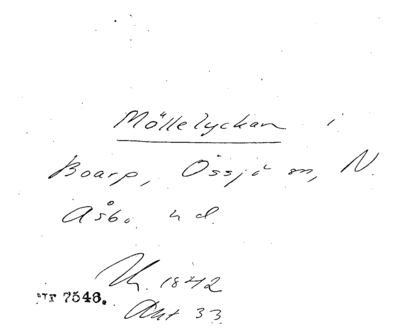 Möllelyckan i
Boarp, Össjö sn, N.
Åsbo hd.
Lk. 1842
Nr 7546. Akt 33